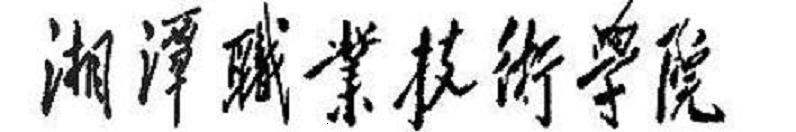 湘潭職業技術學院